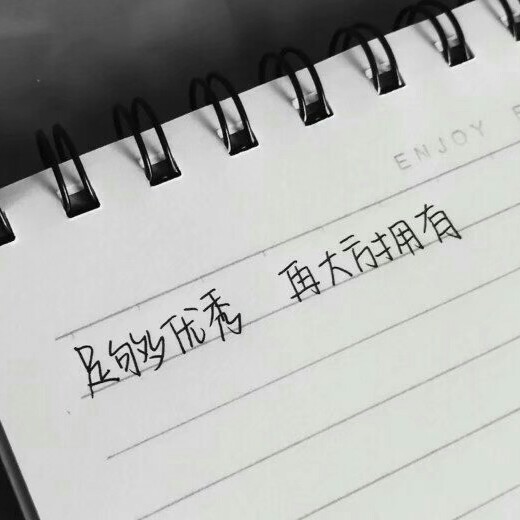 ENJOY
足够优秀 再大方拥有